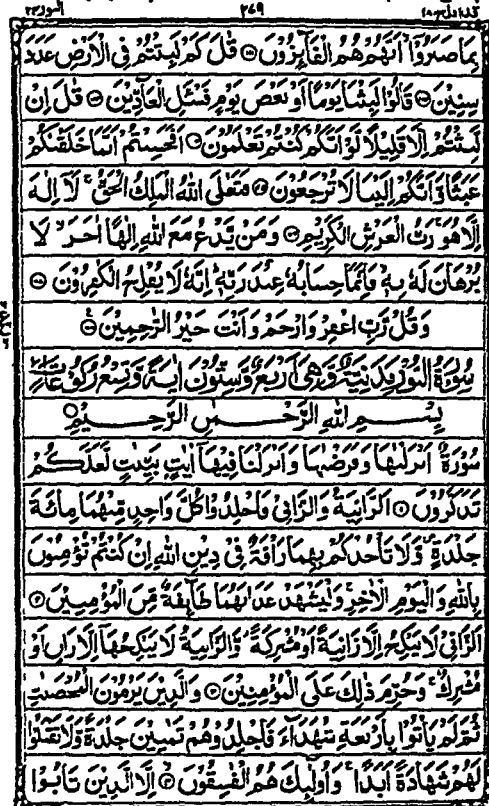 قد افلح ١٨ ٣٧٩ النور ٢٤
بِمَا صَبَرُوْٓا اَنَّهُمْ هُمُ الْفَآئِزُوْنَ قٰلَ كَمْ لَبِثْتُمْ فِى الْاَرْضِ عَدَدَ
سِنِيْنَ قَالُوْا لَبِثْنَا يَوْمًا اَوْ بَعْضَ يَوْمٍ فَسْـَٔلِ الْعَآدِّيْنَ قٰلَ اِنْ
لَّبِثْتُمْ اِلَّا قَلِيْلًا لَّوْ اَنَّكُمْ كُنْتُمْ تَعْلَمُوْنَ اَفَحَسِبْتُمْ اَنَّمَا خَلَقْنٰكُمْ
عَبَثًا وَّاَنَّكُمْ اِلَيْنَا لَا تُرْجَعُوْنَ فَتَعٰلَى اللّٰهُ الْمَلِكُ الْحَقُّ لَآ اِلٰهَ
اِلَّا هُوَ رَبُّ الْعَرْشِ الْكَرِيْمِ وَمَنْ يَّدْعُ مَعَ اللّٰهِ اِلٰهًا اٰخَرَ لَا
بُرْهَانَ لَهٗ بِهٖ فَاِنَّمَا حِسَابُهٗ عِنْدَ رَبِّهٖ اِنَّهٗ لَا يُفْلِحُ الْكٰفِرُوْنَ
وَقُلْ رَّبِّ اغْفِرْ وَارْحَمْ وَاَنْتَ خَيْرُ الرّٰحِمِيْنَ
سُوْرَةُ النُّوْرِ مَدَنِيَّةٌ وَّهِىَ اَرْبَعٌ وَّسِتُّوْنَ اٰيَةً وَّتِسْعُ رُكُوْعَاتٍ
بِسْمِ اللّٰهِ الرَّحْمٰنِ الرَّحِيْمِ
سُوْرَةٌ اَنْزَلْنٰهَا وَفَرَضْنٰهَا وَاَنْزَلْنَا فِيْهَآ اٰيٰتٍۢ بَيِّنٰتٍ لَّعَلَّكُمْ
تَذَكَّرُوْنَ اَلزَّانِيَةُ وَالزَّانِىْ فَاجْلِدُوْا كُلَّ وَاحِدٍ مِّنْهُمَا مِائَةَ
جَلْدَةٍ وَّلَا تَاْخُذْكُمْ بِهِمَا رَاْفَةٌ فِىْ دِيْنِ اللّٰهِ اِنْ كُنْتُمْ تُؤْمِنُوْنَ
بِاللّٰهِ وَالْيَوْمِ الْاٰخِرِ وَلْيَشْهَدْ عَذَابَهُمَا طَآئِفَةٌ مِّنَ الْمُؤْمِنِيْنَ
اَلزَّانِىْ لَا يَنْكِحُ اِلَّا زَانِيَةً اَوْ مُشْرِكَةً وَّالزَّانِيَةُ لَا يَنْكِحُهَآ اِلَّا زَانٍ اَوْ
مُشْرِكٌ وَحُرِّمَ ذٰلِكَ عَلَى الْمُؤْمِنِيْنَ وَالَّذِيْنَ يَرْمُوْنَ الْمُحْصَنٰتِ
ثُمَّ لَمْ يَاْتُوْا بِاَرْبَعَةِ شُهَدَآءَ فَاجْلِدُوْهُمْ ثَمٰنِيْنَ جَلْدَةً وَّلَا تَقْبَلُوْا
لَهُمْ شَهَادَةً اَبَدًا وَاُولٰٓئِكَ هُمُ الْفٰسِقُوْنَ اِلَّا الَّذِيْنَ تَابُوْا